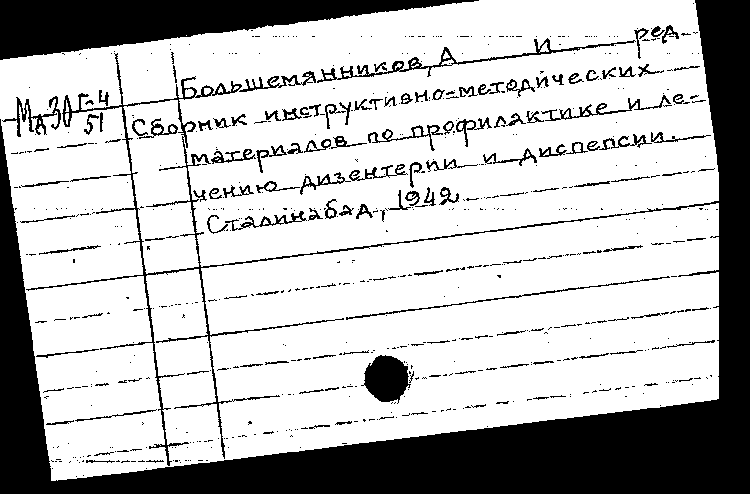 Большемянников, А И ред
Мд30 Г-4
51
Сборник инструктивно-методических
материалов по профилактике и ле-
чению дизентерии и диспепсии.
Сталинабад, 1942.